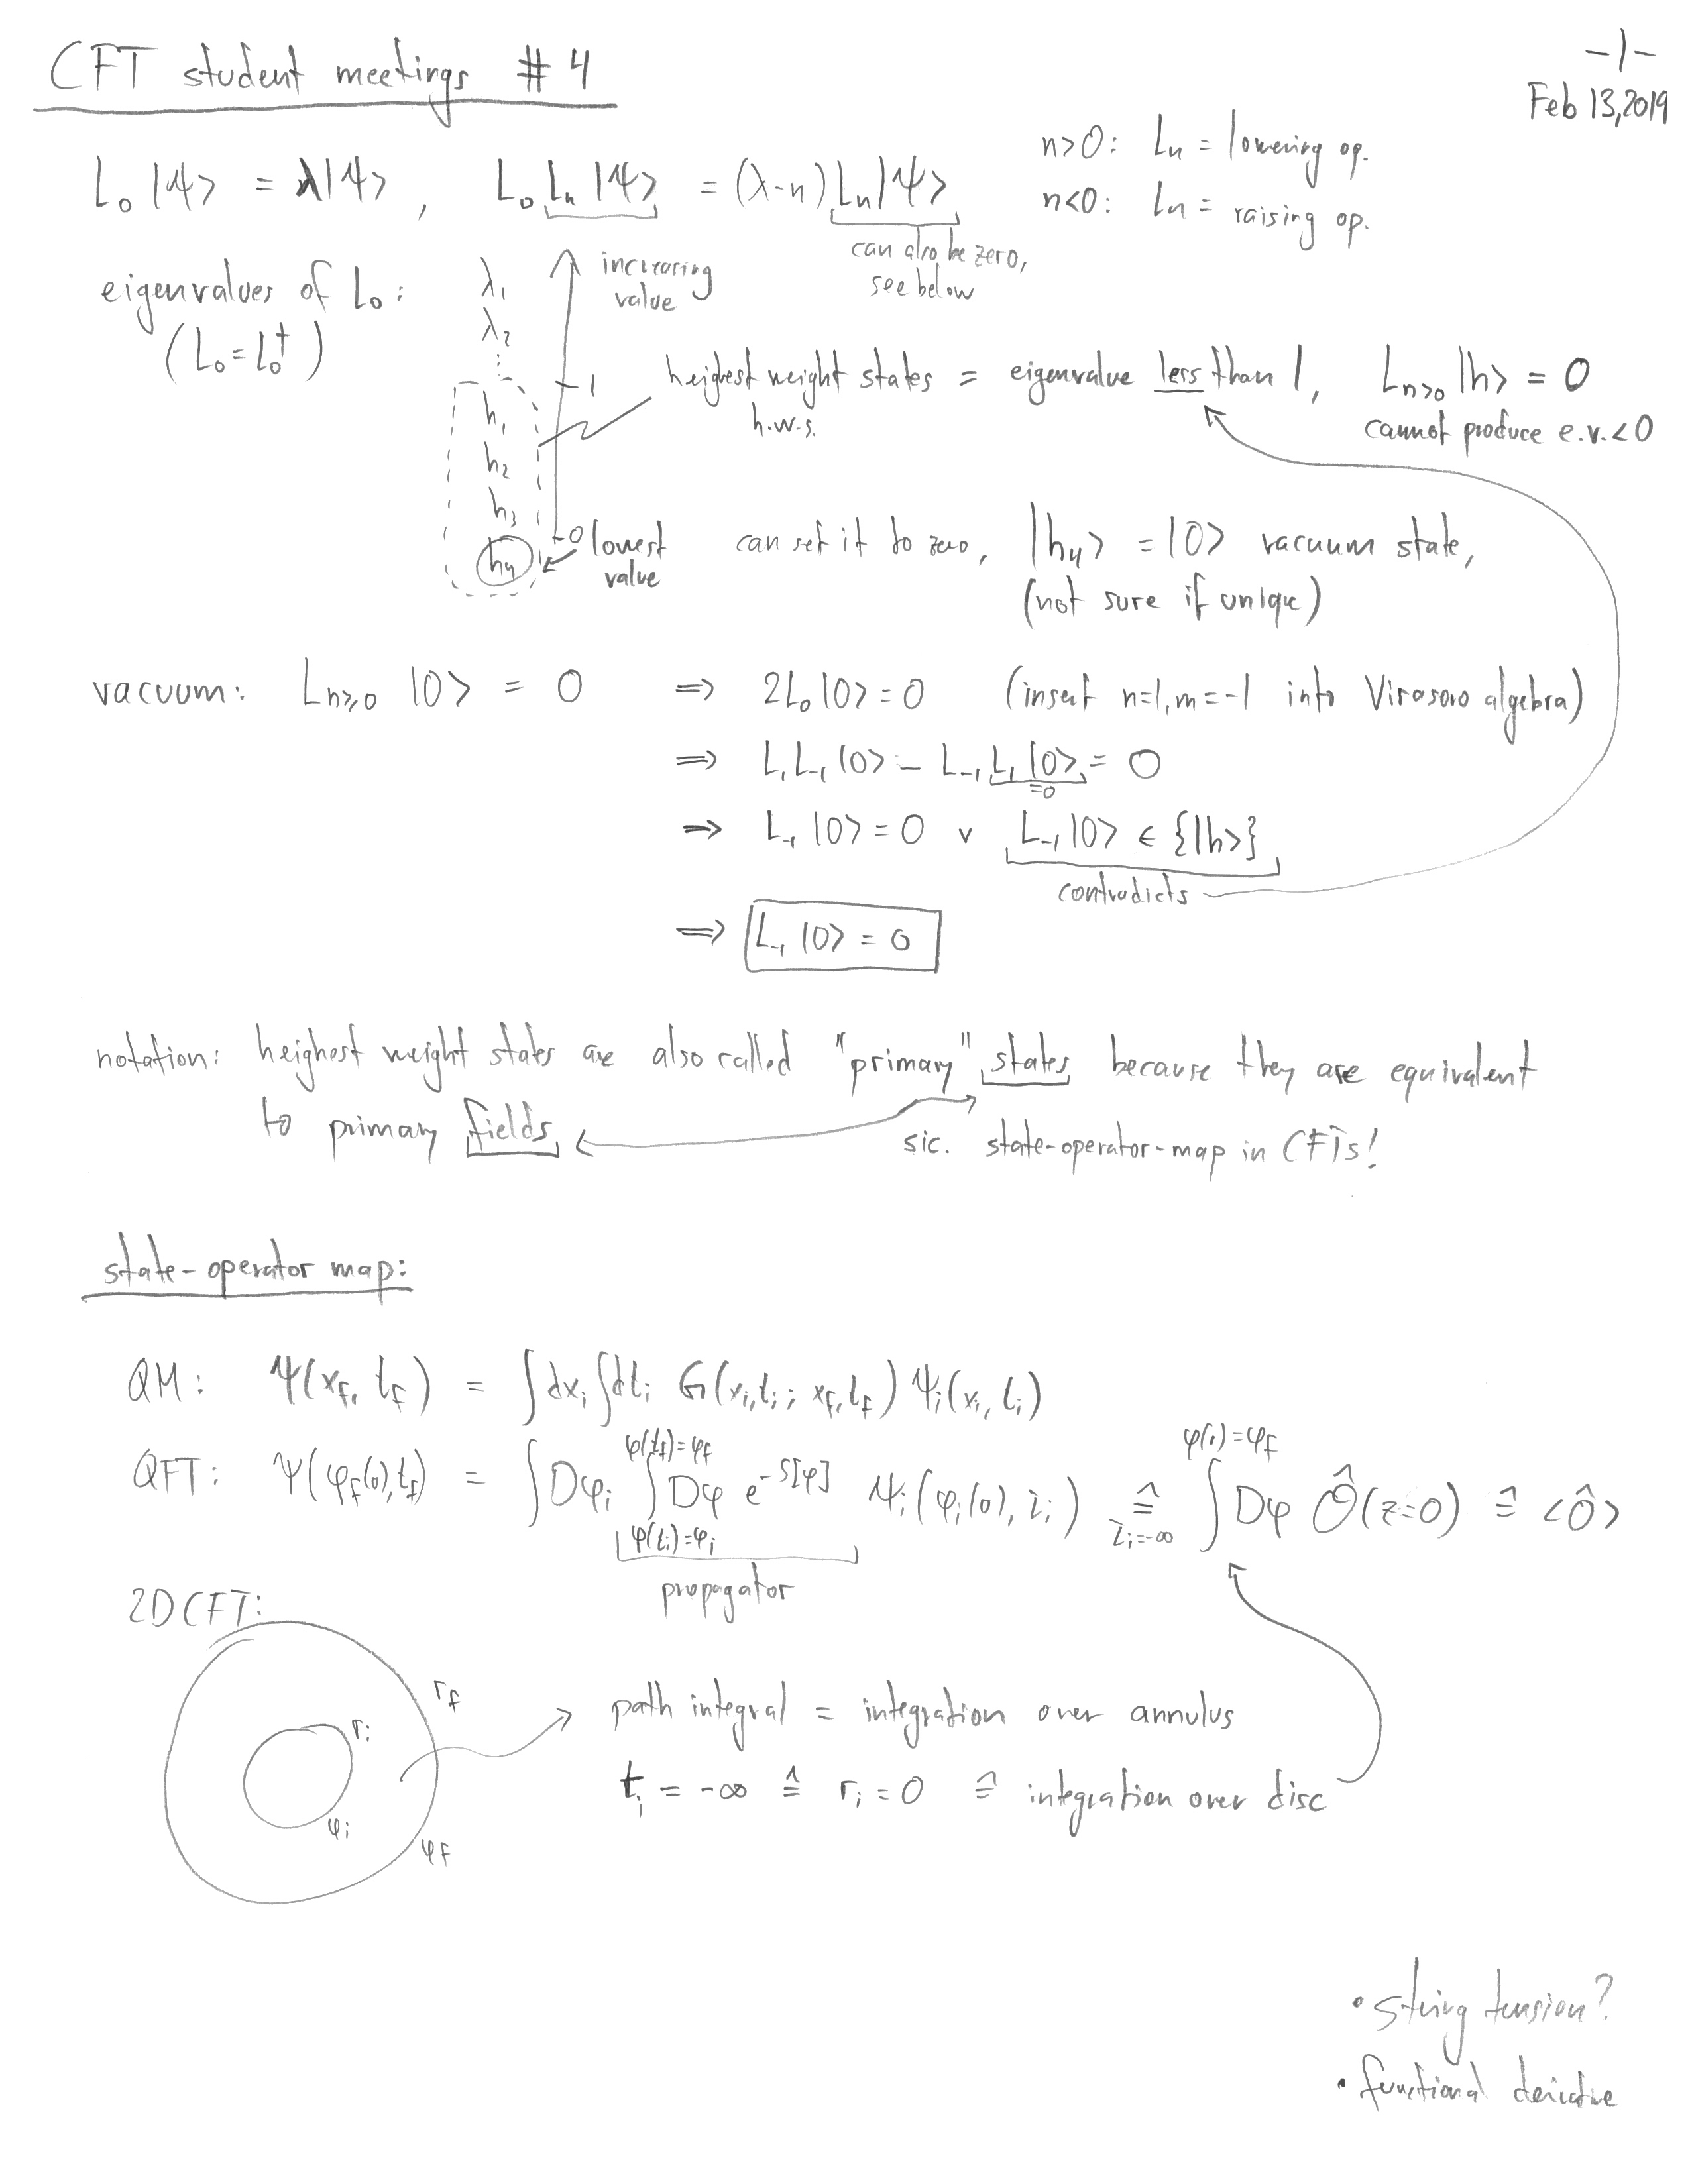 CFT student meetings #4
-1-
Feb 13, 2019
L₀|ψ> = λ|ψ>, L₀Lₙ|ψ> = (λ-n)Lₙ|ψ>
n>0: Lₙ = lowering op.
n<0: Lₙ = raising op.
can also be zero,
see below
eigenvalues of L₀:
(L₀=L₀†)
λ₁
λ₂
⋮
increasing
value
1
h₁
h₂
h₃
h₄
0
heighest weight states = eigenvalue less than 1, Lₙ>₀|h> = 0
h.w.s.
cannot produce e.v.<0
lowest
value
can set it to zero, |h₄> = |0> vacuum state,
(not sure if unique)
vacuum: Lₙ≥₀ |0> = 0 ⇒ 2L₀|0> = 0 (insert n=1, m=-1 into Virasoro algebra)
⇒ L₁L₋₁|0> - L₋₁L₁|0> = 0
=0
⇒ L₋₁|0> = 0 ∨ L₋₁|0> ∈ {|h>}
contradicts
⇒ L₋₁|0> = 0
notation: heighest weight states are also called "primary" states because they are equivalent
to primary fields
sic. state-operator-map in CFTs!
state-operator map:
QM: Ψ(x_f, t_f) = ∫dx_i ∫dt_i G(x_i,t_i; x_f,t_f) Ψ_i(x_i, t_i)
φ(t_f)=φ_f
φ(1)=φ_f
QFT: Ψ(φ_f(σ),t_f) = ∫Dφ_i ∫Dφ e^{-S[φ]} Ψ_i(φ_i(σ), t_i) ≙ ∫Dφ Ô(z=0) ≙ <Ô>
φ(t_i)=φ_i
t_i=-∞
propagator
2D CFT:
r_f
r_i
φ_i
φ_f
path integral = integration over annulus
t_i = -∞ ≙ r_i = 0 ≙ integration over disc
• string tension?
• functional derivative